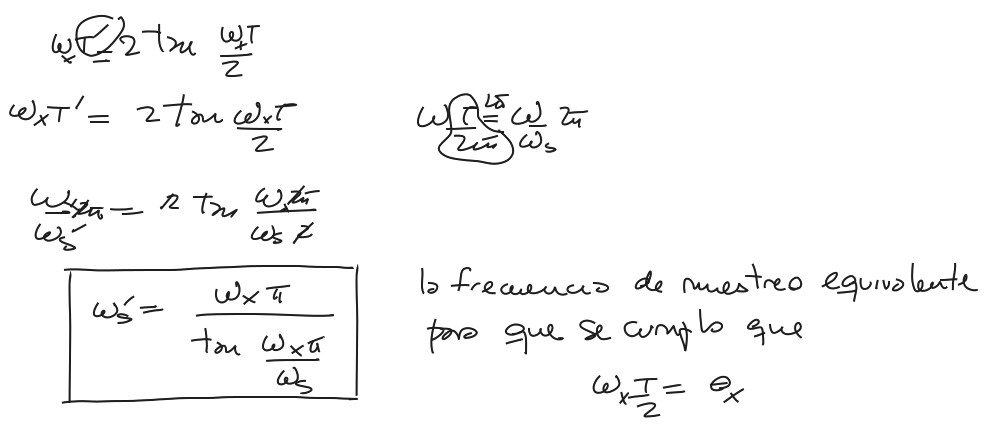 ωₓT' = 2 tan ωₓT/2
ωₓT' = 2 tan ωₓT/2
ω T/2π 2π = ω/ωs 2π
ωₓ2π/ωs' = 2 tan ωₓ2π/ωs2
ωs' = ωₓπ / tan ωₓπ/ωs
la frecuencia de muestreo equivalente
para que se cumpla que
ωₓT/2 = θₓ